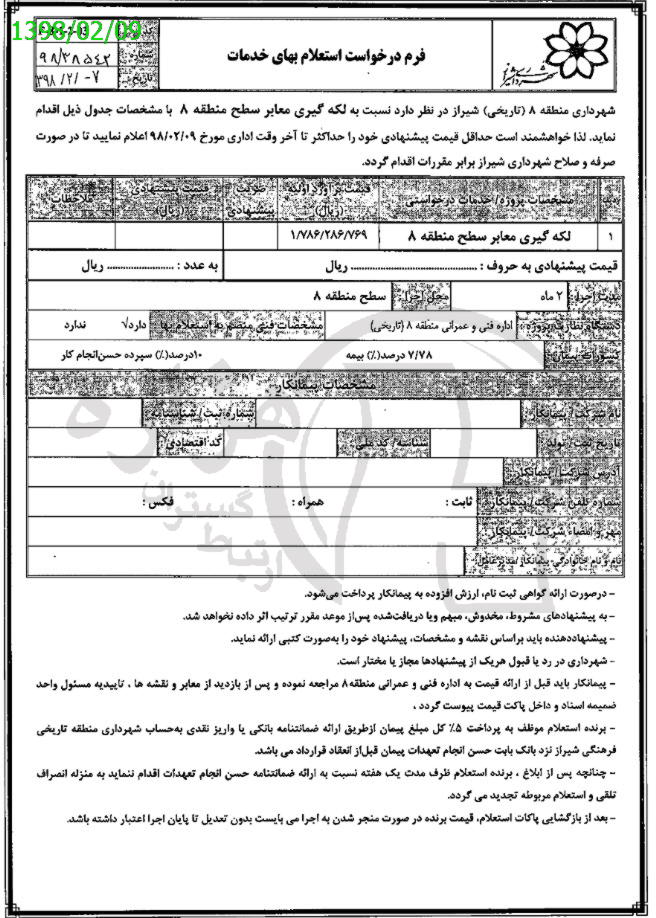 1398/02/09
۹۸/۳۸۵۴۲
۱۳۹۸/۲/-۷
فرم درخواست استعلام بهای خدمات
شهرداری شیراز
شهرداری منطقه ۸ (تاریخی) شیراز در نظر دارد نسبت به لکه گیری معابر سطح منطقه ۸ با مشخصات جدول ذیل اقدام
نماید. لذا خواهشمند است حداقل قیمت پیشنهادی خود را حداکثر تا آخر وقت اداری مورخ ۹۸/۰۲/۰۹ اعلام نمایید تا در صورت
صرفه و صلاح شهرداری شیراز برابر مقررات اقدام گردد.
مشخصات پروژه/ خدمات درخواستی قیمت برآورد اولیه (ریال) ضریب پیشنهادی قیمت پیشنهادی (ریال) ملاحظات
۱ لکه گیری معابر سطح منطقه ۸ ۱/۷۸۶/۲۸۶/۷۶۹
قیمت پیشنهادی به حروف : ........................................ ریال به عدد : ........................ ریال
مدت اجرا: ۲ ماه محل اجرا: سطح منطقه ۸
دستگاه نظارت پروژه : اداره فنی و عمرانی منطقه ۸ (تاریخی) مشخصات فنی منضم به استعلام بها : دارد√ ندارد
کسورات پیمان: ۷/۷۸ درصد(٪) بیمه ۱۰درصد(٪) سپرده حسن‌انجام کار
مشخصات پیمانکار
نام شرکت/ پیمانکار: شماره ثبت/ شناسنامه:
تاریخ ثبت/ تولد: شناسه/ کد ملی: کد اقتصادی:
آدرس شرکت/ پیمانکار:
شماره تلفن شرکت/ پیمانکار: ثابت : همراه : فکس :
مهر و امضاء شرکت/ پیمانکار:
نام و نام خانوادگی پیمانکار/ مدیرعامل:
هزاره
گستران
ارتباط
- درصورت ارائه گواهی ثبت نام، ارزش افزوده به پیمانکار پرداخت می‌شود.
- به پیشنهادهای مشروط، مخدوش، مبهم ویا دریافت‌شده پس‌از موعد مقرر ترتیب اثر داده نخواهد شد.
- پیشنهاددهنده باید براساس نقشه و مشخصات، پیشنهاد خود را به‌صورت کتبی ارائه نماید.
- شهرداری در رد یا قبول هریک از پیشنهادها مجاز یا مختار است.
- پیمانکار باید قبل از ارائه قیمت به اداره فنی و عمرانی منطقه۸ مراجعه نموده و پس از بازدید از معابر و نقشه ها ، تاییدیه مسئول واحد
ضمیمه اسناد و داخل پاکت قیمت پیوست گردد ،
- برنده استعلام موظف به پرداخت ۵٪ کل مبلغ پیمان ازطریق ارائه ضمانتنامه بانکی یا واریز نقدی به‌حساب شهرداری منطقه تاریخی
فرهنگی شیراز نزد بانک بابت حسن انجام تعهدات پیمان قبل‌از انعقاد قرارداد می باشد.
- چنانچه پس از ابلاغ ، برنده استعلام ظرف مدت یک هفته نسبت به ارائه ضمانتنامه حسن انجام تعهدات اقدام ننماید به منزله انصراف
تلقی و استعلام مربوطه تجدید می گردد.
- بعد از بازگشایی پاکات استعلام، قیمت برنده در صورت منجر شدن به اجرا می بایست بدون تعدیل تا پایان اجرا اعتبار داشته باشد.